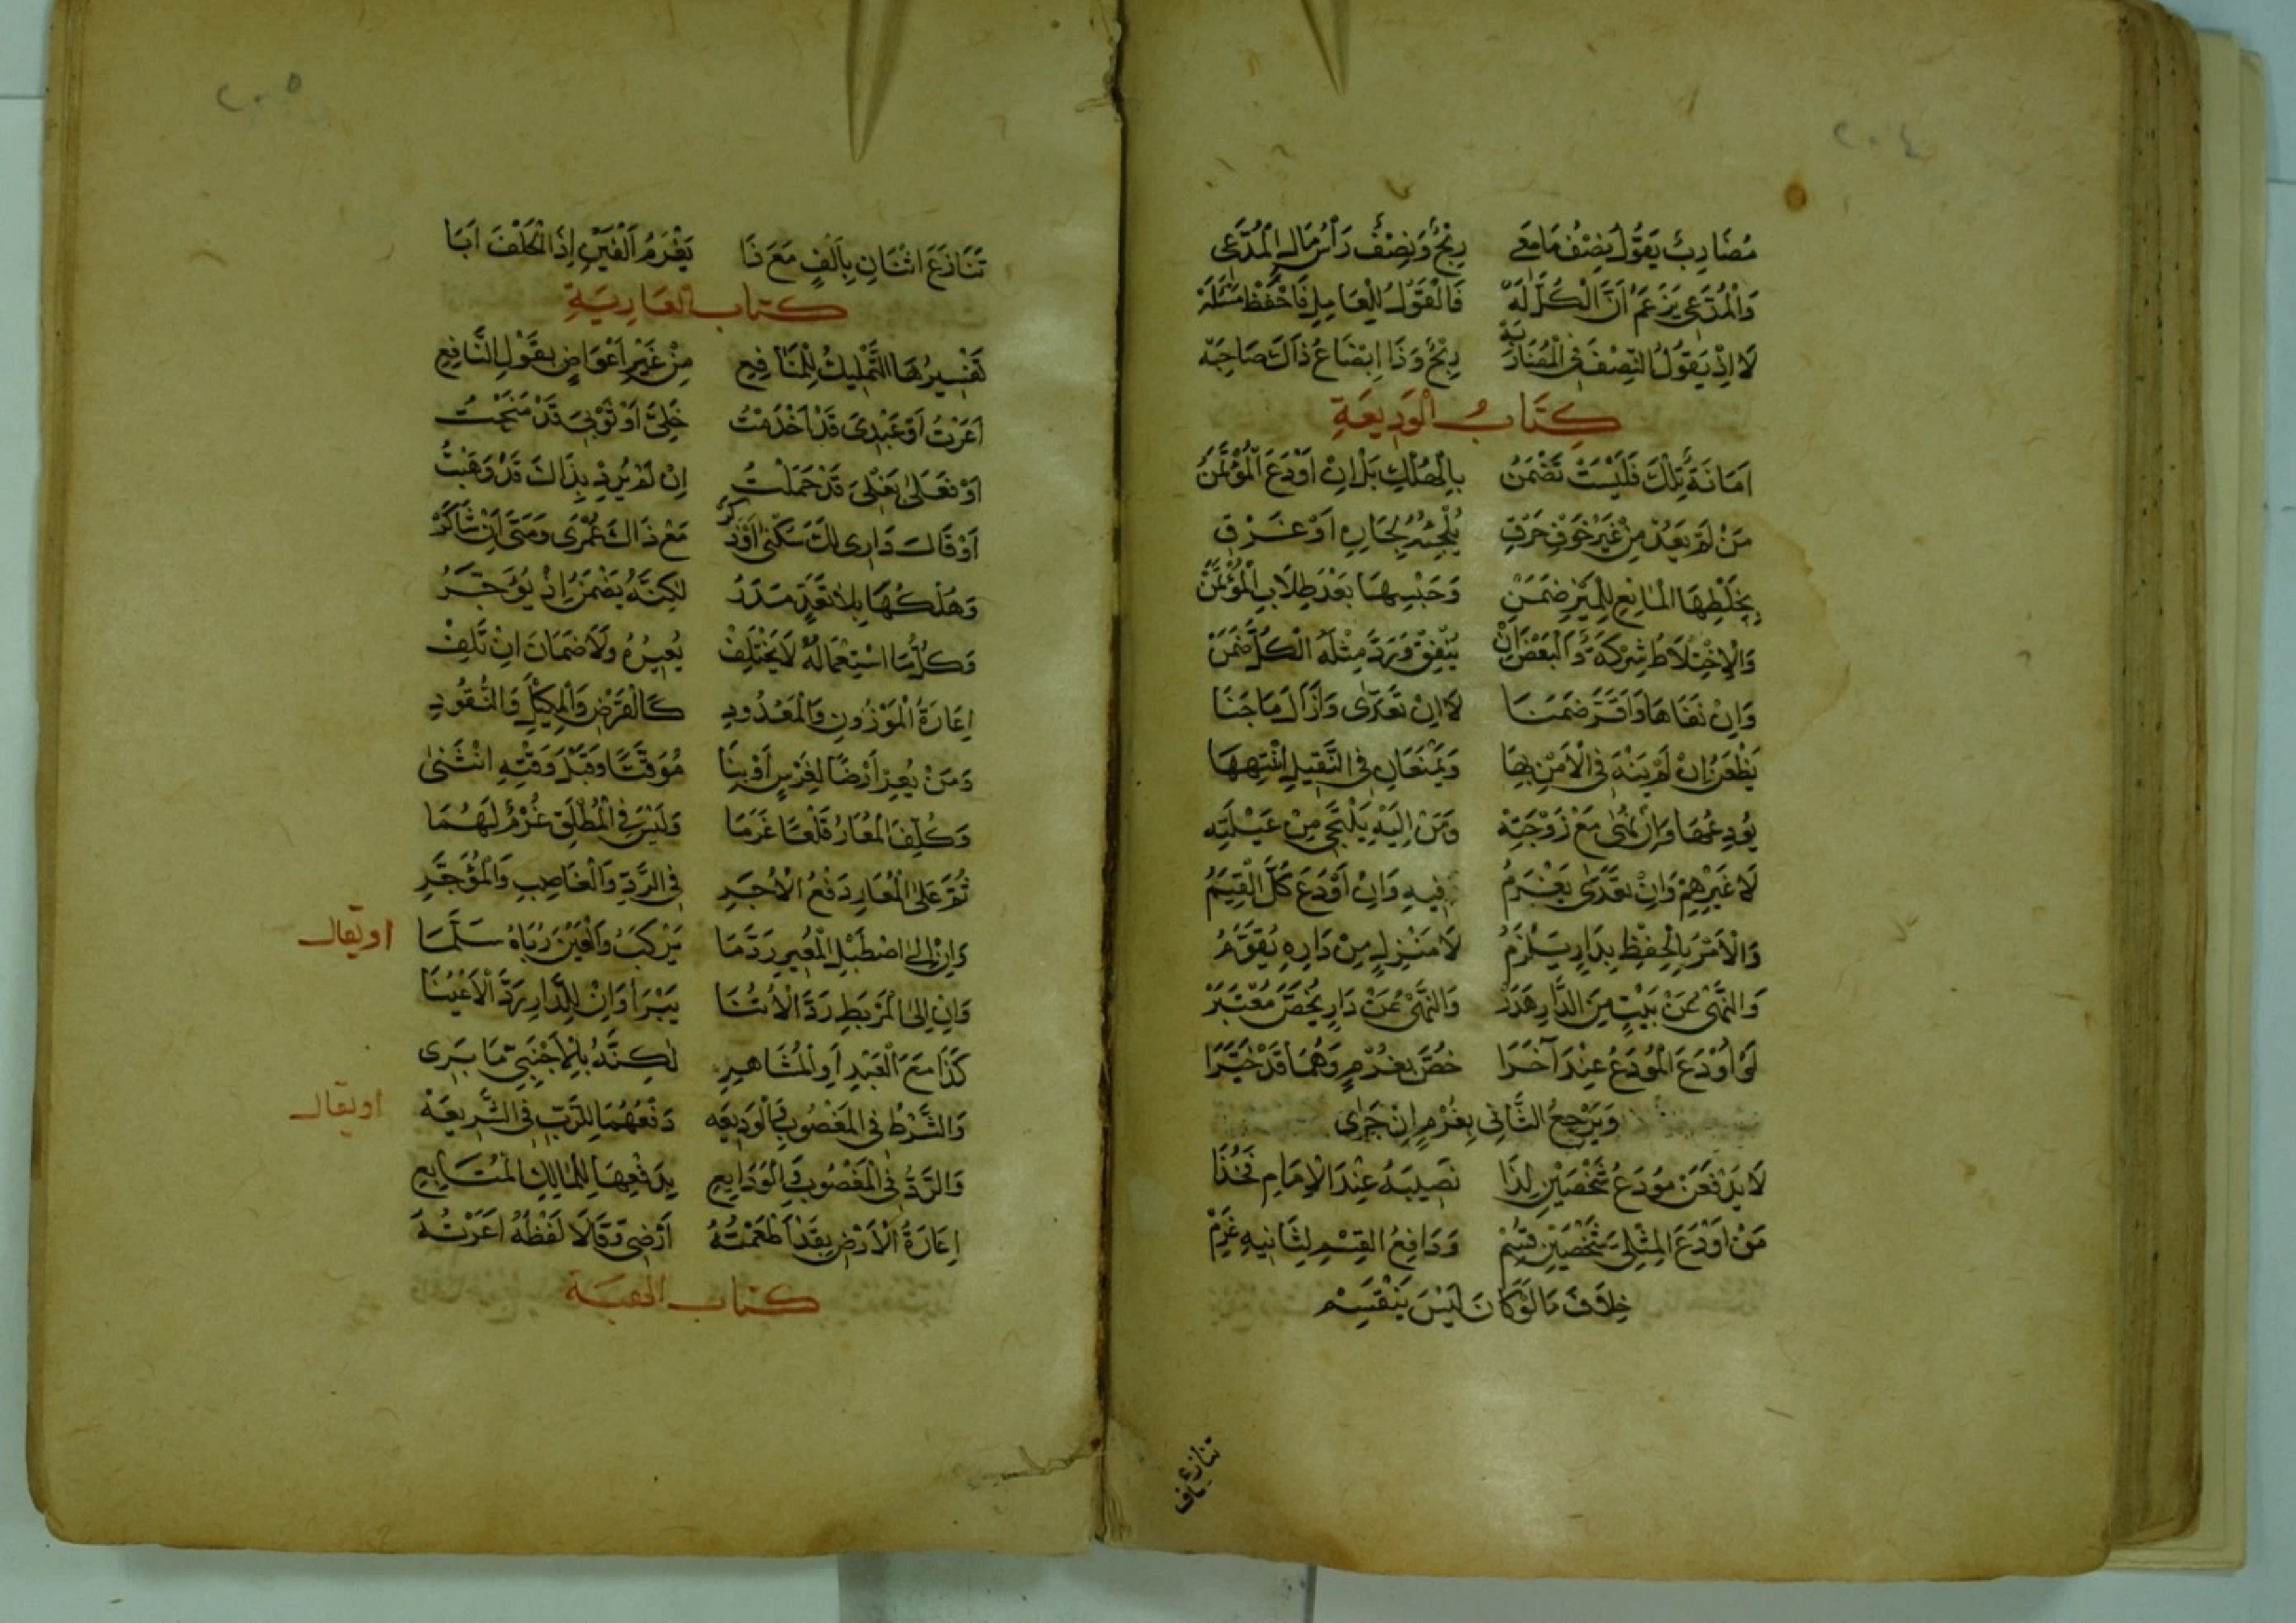 ٢٠٤
مُضَارِبٌ يَقُولُ نِصْفُ مَا مَعِي رِبْحٌ وَنِصْفٌ رَأْسُ مَالِ الْمُدَّعِي
وَالْمُدَّعِي يَزْعَمُ أَنَّ الْكُلَّ لَهْ فَالْقَوْلُ لِلْعَامِلِ فَاحْفَظْ مَسْئَلَهْ
لَا إِذْ يَقُولُ النِّصْفَ فِي الْمُضَارَبَهْ رِبْحٌ وَذَا إِبْضَاعُ ذَاكَ صَاحِبَهْ
كِتَابُ الْوَدِيعَةِ
أَمَانَةٌ تِلْكَ فَلَيْسَتْ تُضْمَنُ بِالْهُلْكِ بَلْ إِنْ أَوْدَعَ الْمُؤْتَمَنُ
مَنْ لَمْ يَعُدْ مِنْ غَيْرِ خَوْفِ حَرَقِ يُلْجِئُهُ لِجَارِهِ أَوْ غَرَقِ
بِخَلْطِهَا الْمَانِعِ لِلْمَيْزِ ضَمَنْ وَحَبْسِهَا بَعْدَ طِلَابِ الْمُؤْتَمَنْ
وَالْاِخْتِلَاطُ شِرْكَةٌ وَالْبَعْضَ إِنْ يُنْفِقْ وَرَدَّ مِثْلَهُ الْكُلَّ ضَمَنْ
وَإِنْ نَفَاهَا وَأَقَرَّ ضَمِنَا لَا إِنْ تَعَدَّى وَأَزَالَ مَا جَنَا
يَظْعَنُ إِنْ لَمْ يَنْهَ فِي الْأَمْنِ بِهَا وَيَمْنَعَانِ فِي الثَّقِيلِ انْتَبِهَا
يُودِعُهَا وَإِنْ نُهِي مَعْ زَوْجَتِهْ وَمَنْ إِلَيْهِ يَلْتَجِي مِنْ عَيْلَتِهْ
لَا غَيْرِهِمْ وَإِنْ تَعَدَّى يَغْرَمُ فِيهِ وَإِنْ أَوْدَعَ كُلَّ الْقِيَمُ
وَالْأَمْرُ بِالْحِفْظِ بِدَارٍ يَلْزَمُ لَا مَنْزِلٍ مِنْ دَارِهِ يُقَوَّمُ
وَالنَّهْيُ عَنْ بَيْتٍ مِنَ الدَّارِ هَدَرْ وَالنَّهْيُ عَنْ دَارٍ يُخَصُّ مُعْتَبَرْ
لَوْ أَوْدَعَ الْمُودَعُ عِنْدَ آخَرَا خُصَّ بِغُرْمٍ وَهُمَا قَدْ خَيَّرَا
وَيَرْجِعُ الثَّانِي بِغُرْمٍ إِنْ جَرَى
لَا يَدْفَعَنْ مُودَعُ شَخْصَيْنِ لِذَا نَصِيبَهُ عِنْدَ الْإِمَامِ فَخُذَا
مَنْ أَوْدَعَ الْمِثْلِي بِشَخْصَيْنِ قُسِمْ وَدَافِعُ الْقِسْمِ لِثَانِيهِ غَرِمْ
خِلَافَ مَا لَوْ كَانَ لَيْسَ يَنْقَسِمْ
تنازع
٢٠٥
تَنَازَعَ اثْنَانِ بِأَلْفٍ مَعَ ذَا يَغْرَمُ أَلْفَيْنِ إِذَا الْحَلْفَ أَبَا
كتاب العارية
تَفْسِيرُهَا التَّمْلِيكُ لِلْمَنَافِعِ مِنْ غَيْرِ أَعْوَاضٍ بِقَوْلِ النَّافِعِ
أَعَرْتُ أَوْ عَبْدِيَ قَدْ أَخْدَمْتُ خِلِّيَ أَوْ ثَوْبِيَ قَدْ مَنَحْتُ
أَوْ نَعَلَى بَغْلِيَ قَدْ حَمَلْتُ إِنْ لَمْ يُرِدْ بِذَاكَ قَدْ وَهَبْتُ
أَوْ قَالَ دَارِي لَكَ سُكْنَى أَوْ ذَكَرْ مَعْ ذَاكَ عُمْرَى وَمَتَى إِنْ شَا كَرْ
وَهُلْكُهَا بِلَا تَعَدٍّ هَدَرُ لَكِنَّهُ يَضْمَنُ إِذْ يُؤَجِّرُ
وَكُلُّ مَا اسْتِعْمَالُهُ لَا يَخْتَلِفْ يُعِيرُهُ وَلَا ضَمَانَ إِنْ تَلِفْ
إِعَارَةُ الْمَوْزُونِ وَالْمَعْدُودِ كَالْقَرْضِ وَالْمَكِيلِ وَالنُّقُودِ
وَمَنْ يُعِرْ أَرْضًا لِغَرْسٍ أَوْ بِنَا مُوَقَّتًا وَقَبْلَ وَقْتِهِ انْثَنَى
وَكَلَّفَ الْمُعَارَ قَلْعًا غَرَمَا وَلَيْسَ فِي الْمُطْلَقِ غُرْمٌ لَهُمَا
ثُمَّ عَلَى الْمُعَارِ دَفْعُ الْأَجْرِ فِي الرَّدِّ وَالْغَاصِبِ وَالْمُؤَجِّرِ
وَإِنْ إِلَى اصْطَبْلِ الْمُعِيرِ رَدَّ مَا يَرْكَبُ وَالْقِنَّ رُبَاهُ سَلَّمَا
او يقال
وَإِنْ إِلَى الْمَرْبَطِ رَدَّ الْأُتُنَا يَبْرَا وَإِنْ لِلدَّارِ رَدَّ الْأَعْيُنَا
كَذَا مَعَ الْعَبْدِ أَوِ الْمُشَاهِرِ لَكِنَّهُ بِالْأَجْنَبِيِّ مَا بَرِي
وَالشَّرْطُ فِي الْمَغْصُوبِ وَالْوَدِيعَهْ دَفْعُهُمَا لِلرَّبِّ فِي الشَّرِيعَهْ
او يقال
وَالرَّدُّ فِي الْمَغْصُوبِ وَالْوَدَايِعِ بِدَفْعِهَا لِلْمَالِكِ الْمُتَابِعِ
إِعَارَةُ الْأَرْضِ بِقَدْ أَطْعَمْتُهُ أَرْضِي وَقَالَا لَفْظَهُ أَعَرْتُهُ
كتاب الهبة